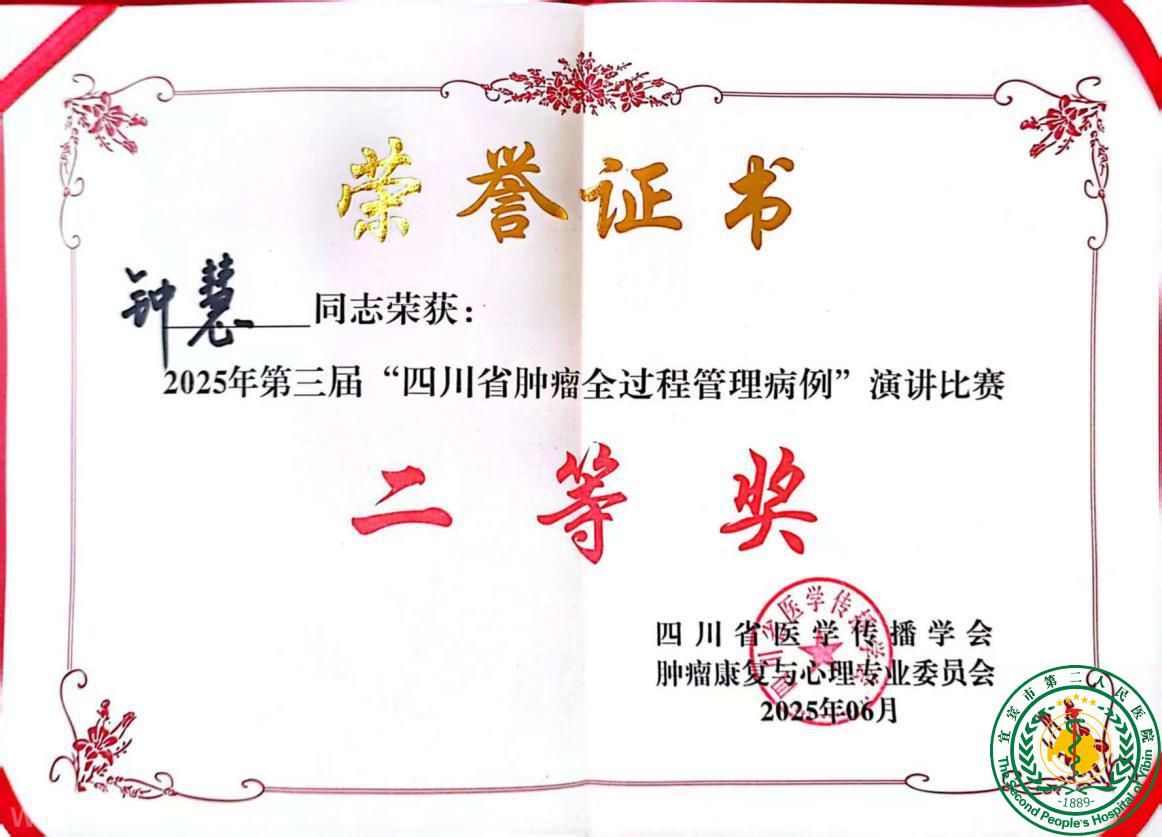 荣誉证书
钟慧同志荣获：
2025年第三届“四川省肿瘤全过程管理病例”演讲比赛
二等奖
四川省医学传播学会
肿瘤康复与心理专业委员会
2025年06月
四川省医学传播学会
宜宾市第二人民医院
-1889-
The Second People's Hospital of Yibin